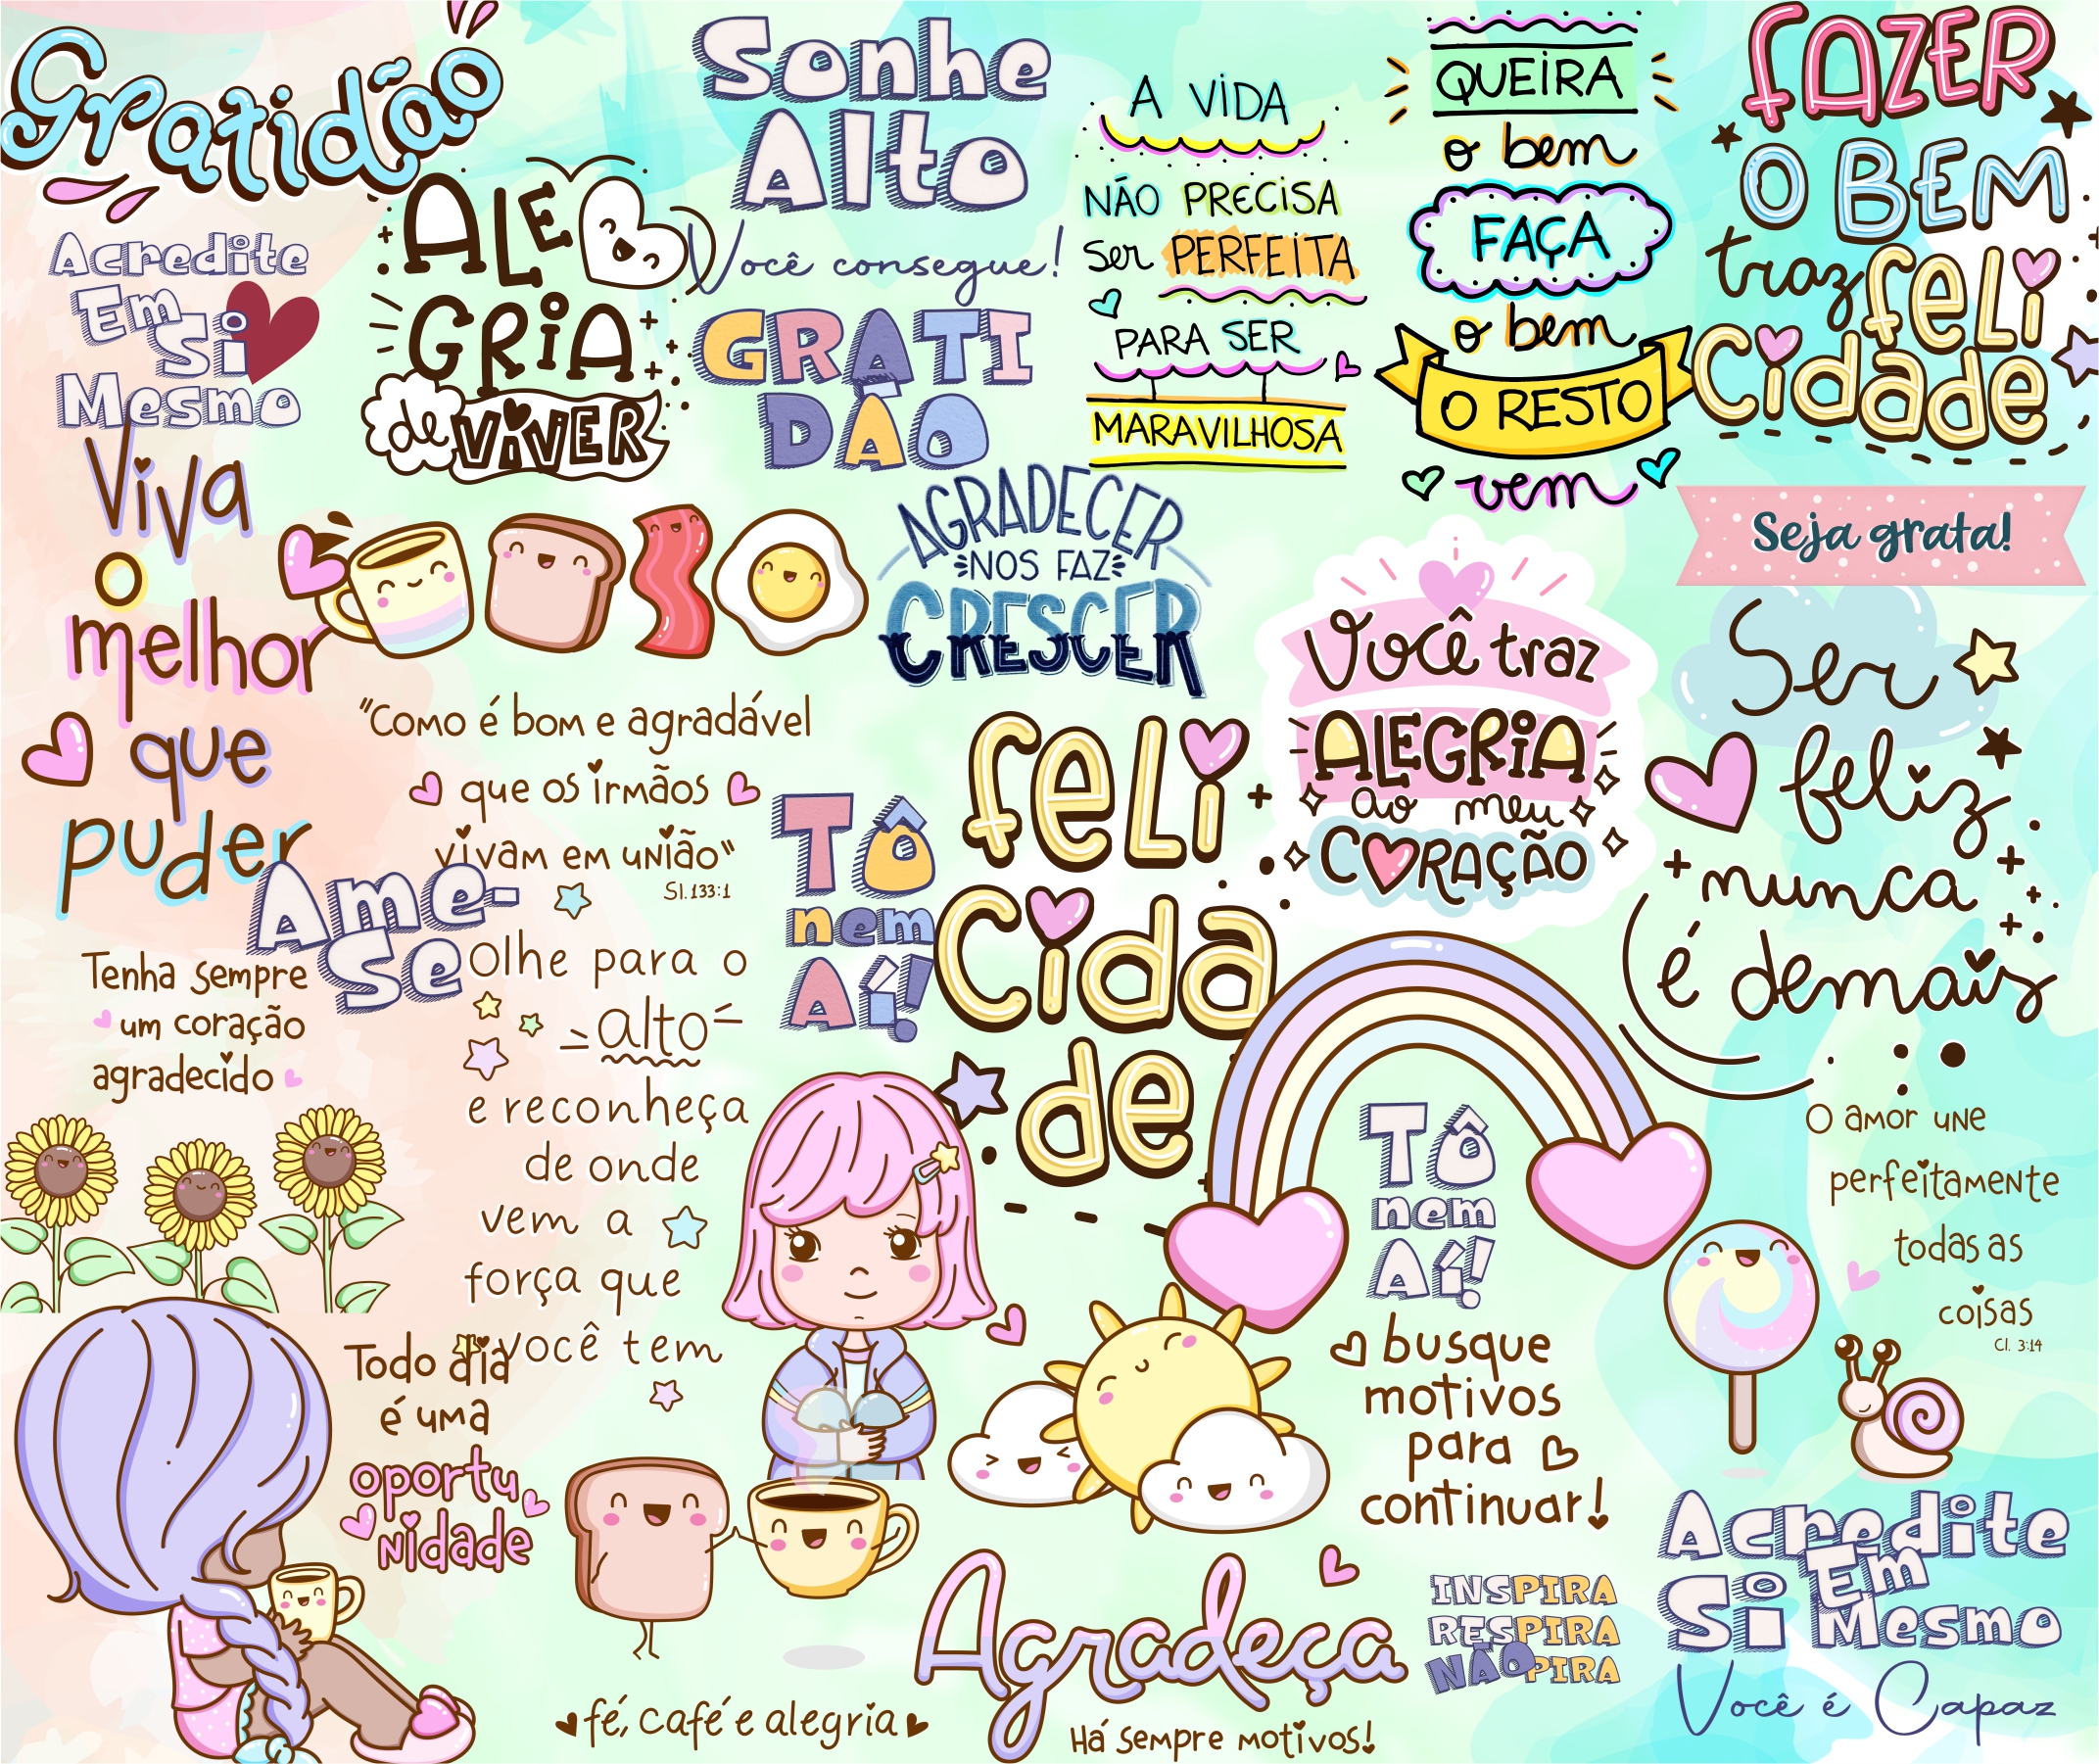 Gratidão
Acredite
Em
Si
Mesmo
Viva
o
melhor
que
puder
ALE
GRiA
de VIVER
Sonhe
Alto
Você consegue!
GRATI
DÃO
A VIDA
NÃO PRECISA
Ser PERFEITA
PARA SER
MARAVILHOSA
QUEIRA
o bem
FAÇA
o bem
O RESTO
vem
FAZER
O BEM
traz feli
Cidade
Seja grata!
AGRADECER
NOS FAZ
CRESCER
Você traz
ALEGRiA
ao meu
CORAÇÃO
Ser
feliz
nunca
é demais
"Como é bom e agradável
que os irmãos
vivam em união"
Sl. 133:1
Ame-
Se
Tenha sempre
um coração
agradecido
Olhe para o
alto
e reconheça
de onde
vem a
força que
você tem
TÔ
nem
AÍ!
feli
Cida
de
TÔ
nem
AÍ!
O amor une
perfeitamente
todas as
coisas
Cl. 3:14
Todo dia
é uma
oportu
nidade
busque
motivos
para
continuar!
fé, café e alegria
Agradeça
Há sempre motivos!
INSPIRA
RESPIRA
NÃO PIRA
Acredite
Em
Si Mesmo
Você é Capaz